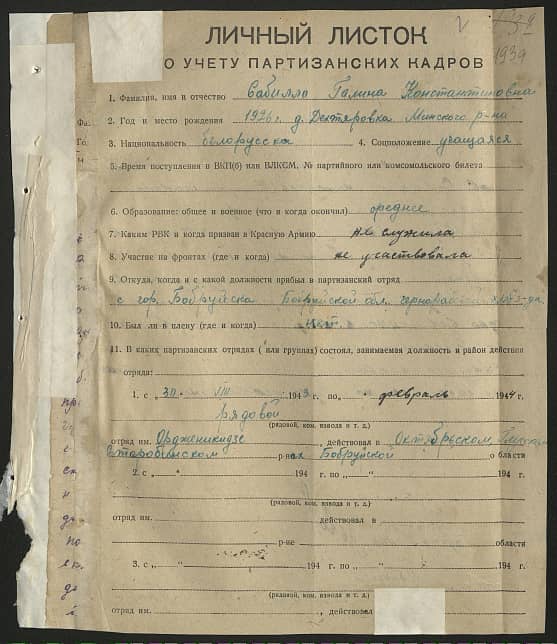 1939
ЛИЧНЫЙ ЛИСТОК
О УЧЕТУ ПАРТИЗАНСКИХ КАДРОВ
1. Фамилия, имя и отчество Сабилло Галина Константиновна
2. Год и место рождения 1926 г. д. Дехтяровка Минского р-на
3. Национальность белорусска 4. Соцположение учащаяся
5. Время поступления в ВКП(б) или ВЛКСМ, № партийного или комсомольского билета
6. Образование: общее и военное (что и когда окончил) среднее
7. Каким РВК и когда призван в Красную Армию не служила
8. Участие на фронтах (где и когда) не участвовала
9. Откуда, когда и с какой должности прибыл в партизанский отряд
с гор. Бобруйска Бобруйской обл.
10. Был ли в плену (где и когда) нет.
11. В каких партизанских отрядах (или группах) состоял, занимаемая должность и район действия
отряда:
1. с „30“ VIII 1943 г. по „ “ февраль 1944 г.
рядовой
(рядовой, ком. взвода и т. д.)
отряд им. Орджоникидзе, действовал в Октябрьском,
Старобинском р-нах Бобруйской области
2. с „ “ 194 г. по „ “ 194 г.
(рядовой, ком. взвода и т. д.)
отряд им. действовал в
р-не области
3. с „ “ 194 г. по „ “ 194 г.
(рядовой, ком. взвода и т. д.)
отряд им. , действовал